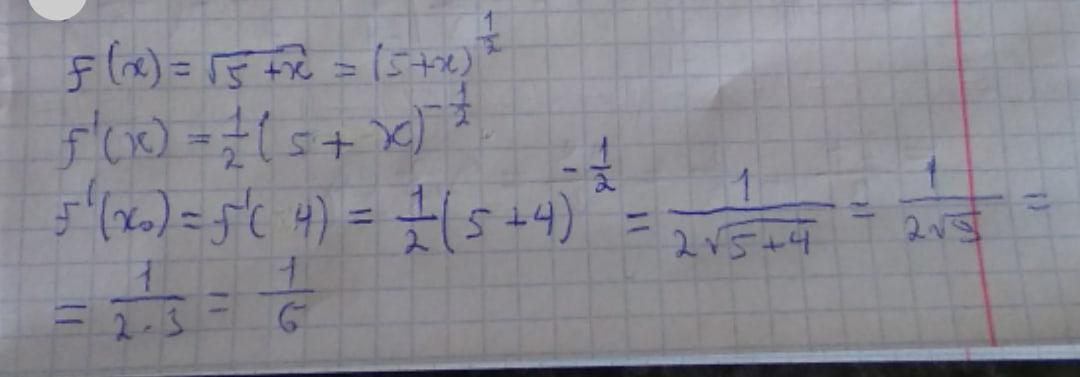 f(x) = √(5+x) = (5+x)^(1/2)
f'(x) = 1/2 (5 + x)^(-1/2)
f'(x₀) = f'( 4) = 1/2 (5+4)^(-1/2) = 1/(2√(5+4)) = 1/(2√9) =
= 1/(2·3) = 1/6